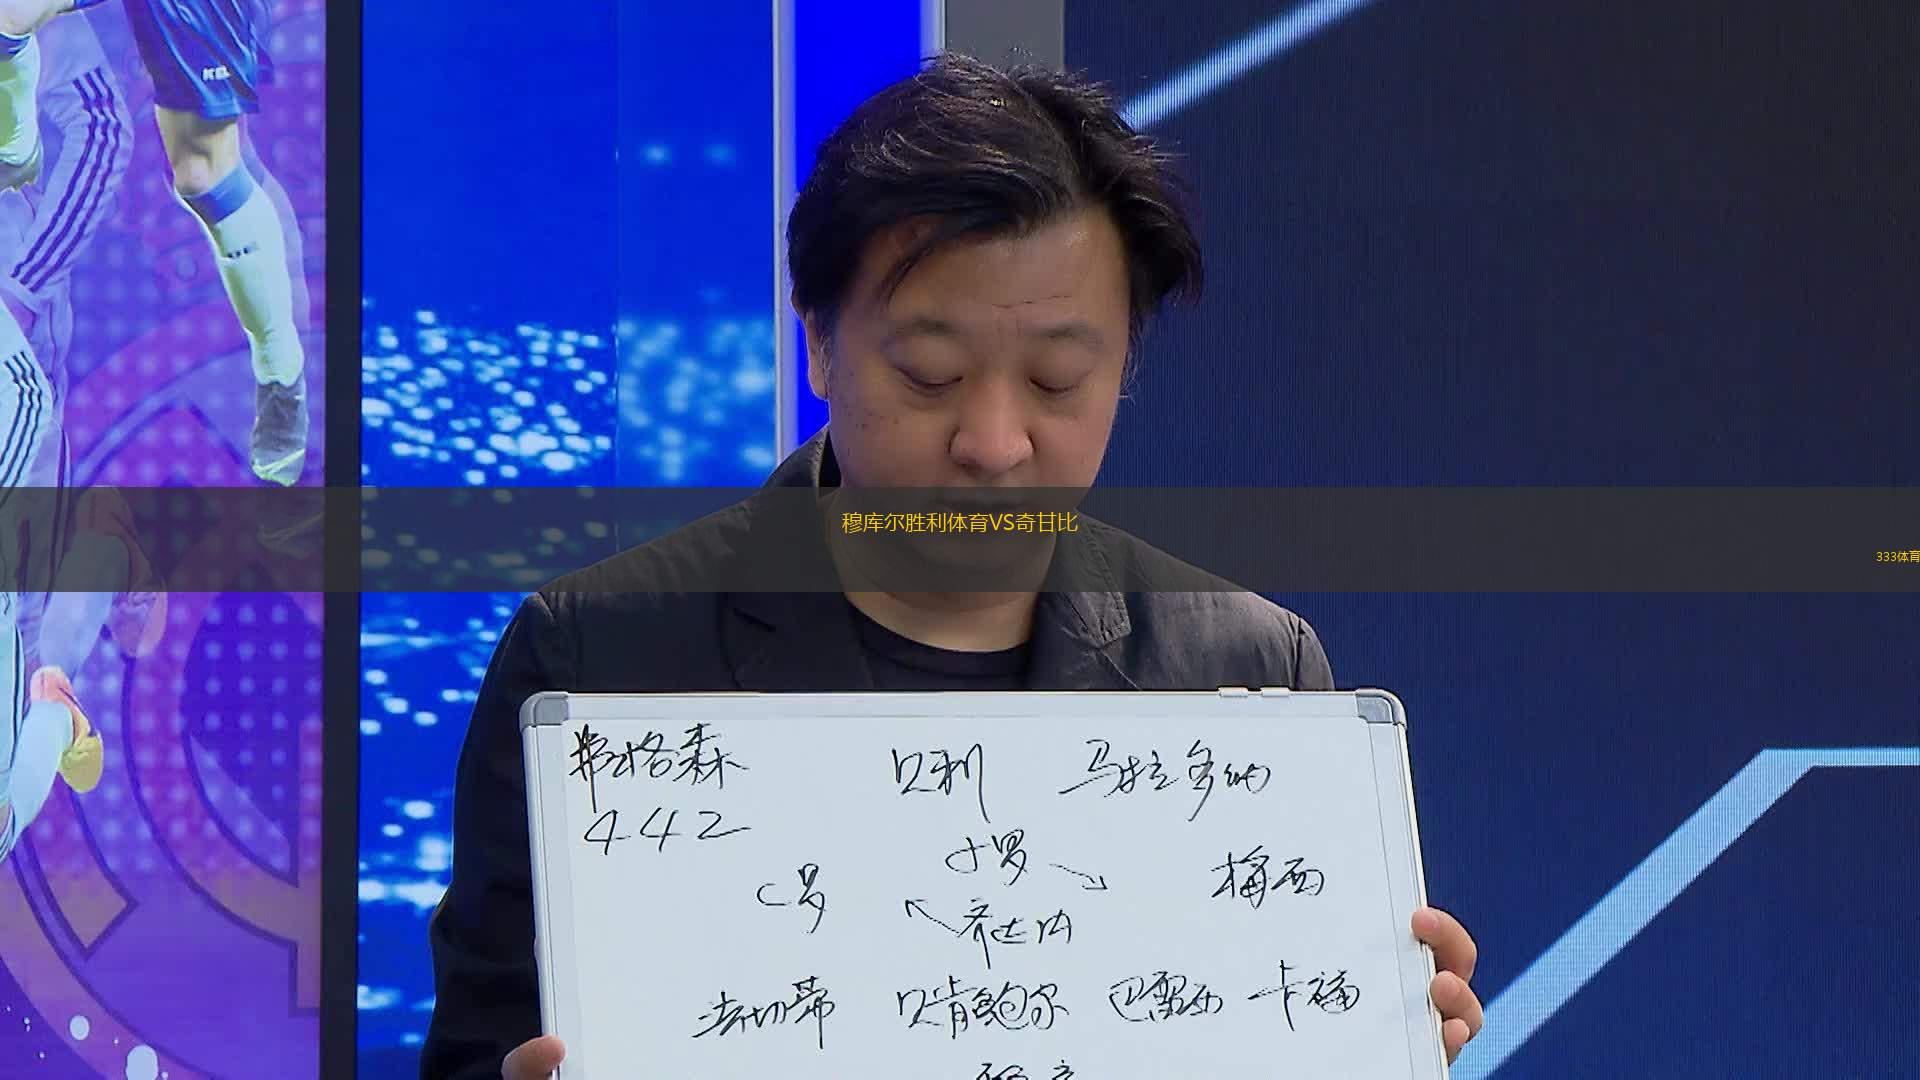 穆库尔胜利体育VS奇甘比
333体育
弗格森 贝利 马拉多纳
442
小罗
C罗 梅西
齐达内
法切蒂 贝肯鲍尔 巴雷西 卡福